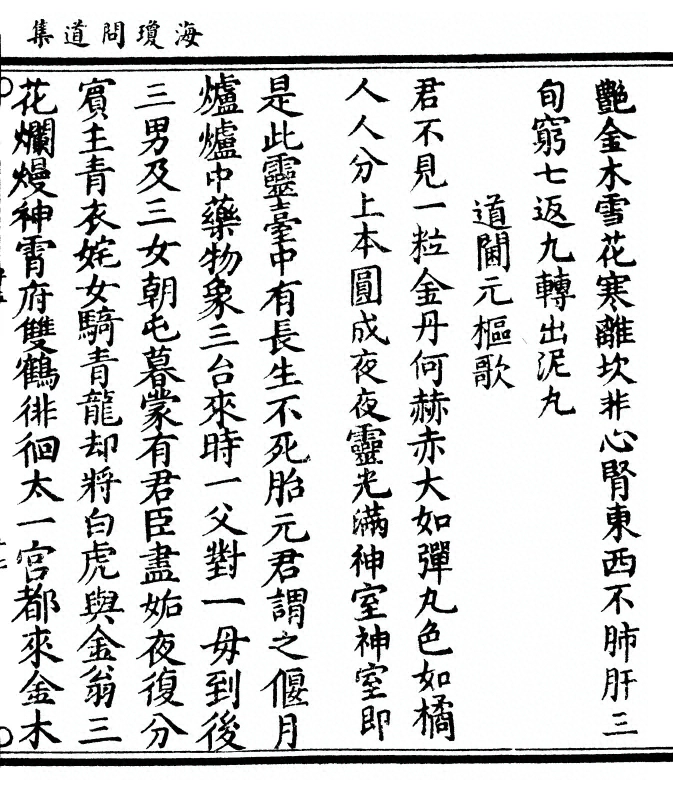 海瓊問道集
艷金木雪花寒離坎非心腎東西不肺肝三
旬窮七返九轉出泥丸
道閫元樞歌
君不見一粒金丹何赫赤大如彈丸色如橘
人人分上本圓成夜夜靈光滿神室神室即
是此靈臺中有長生不死胎元君謂之偃月
爐爐中藥物象三台來時一父對一母到後
三男及三女朝屯暮蒙有君臣盡姤夜復分
賓主青衣姹女騎青龍却將白虎與金翁三
花爛熳神霄府雙鶴徘徊太一宮都來金木